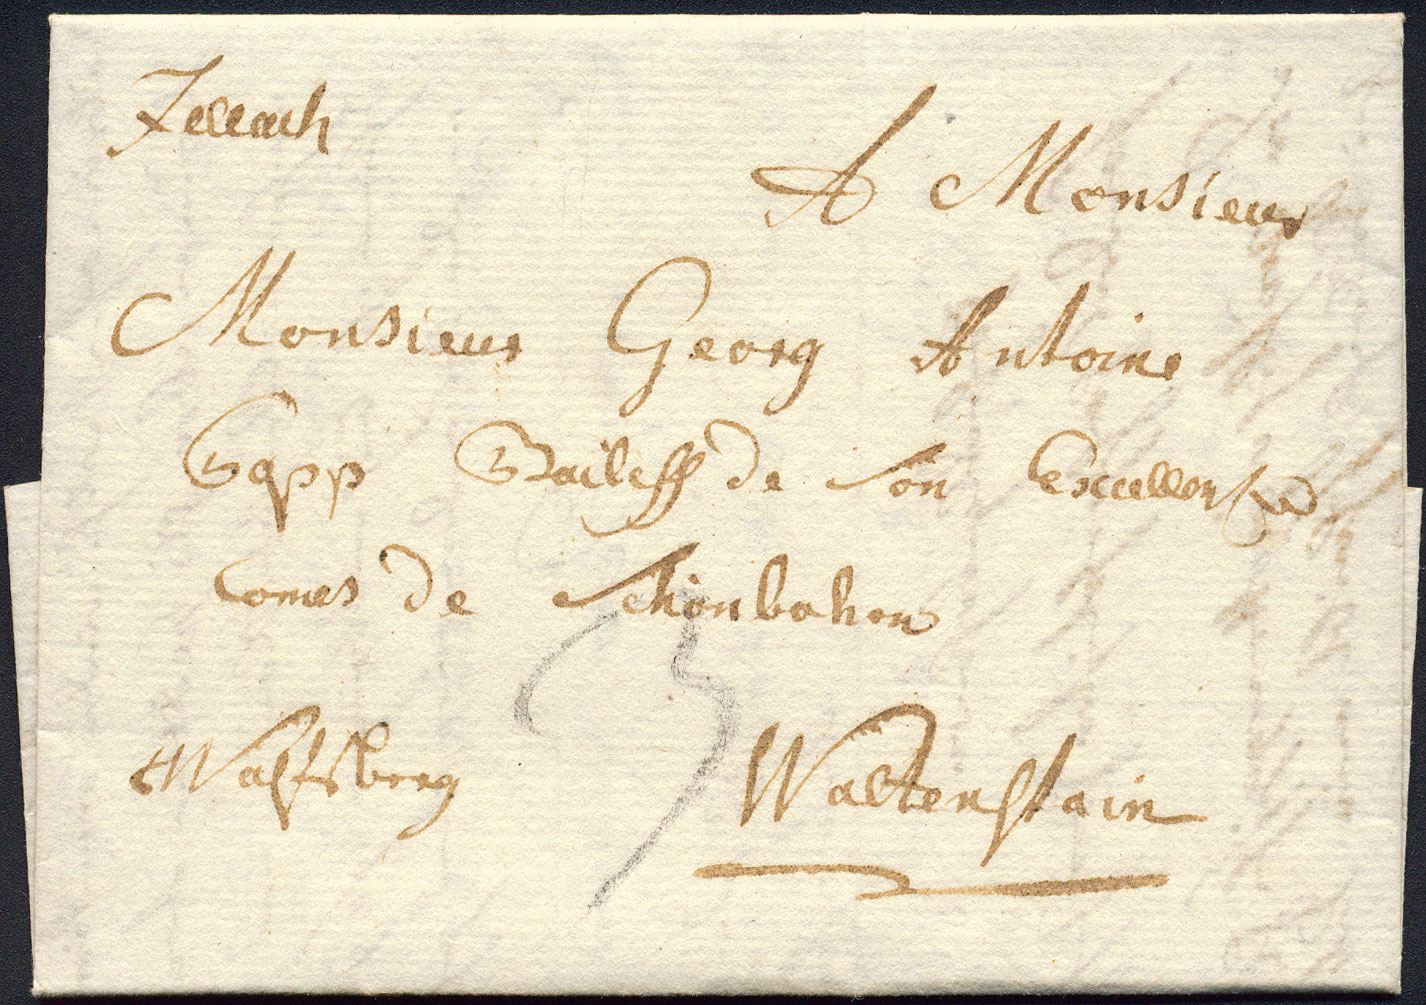 Villach
A Monsieur
Monsieur Georg Antoine
Baileff de son Excellence
Comes de Schonbohon
3
Wolfsberg
Waltenstain